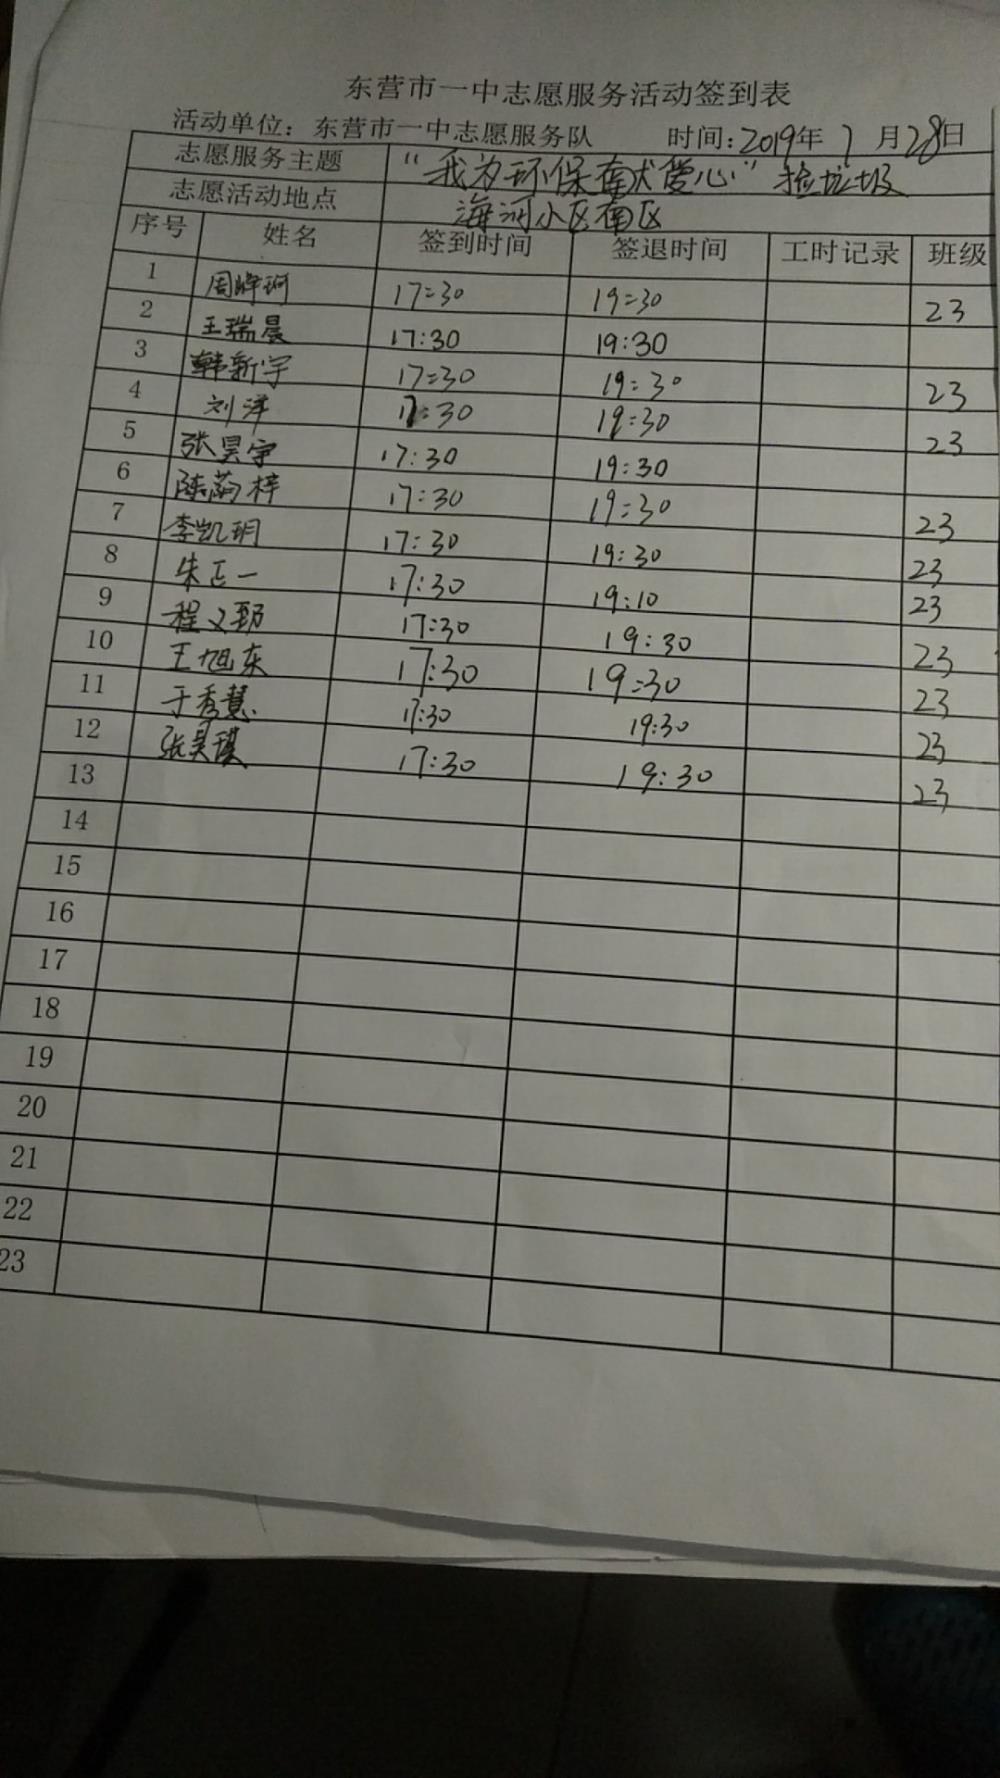 东营市一中志愿服务活动签到表
活动单位：东营市一中志愿服务队 时间：2019年7月28日
志愿服务主题 “我为环保奉献爱心”捡垃圾
志愿活动地点 海河小区南区
序号 姓名 签到时间 签退时间 工时记录 班级
1 17:30 19:30 23
2 王瑞晨 17:30 19:30
3 韩新宇 17:30 19:30 23
4 刘洋 17:30 19:30 23
5 张昊宇 17:30 19:30
6 17:30 19:30 23
7 李凯玥 17:30 19:30 23
8 朱正一 17:30 19:10 23
9 17:30 19:30 23
10 王旭东 17:30 19:30 23
11 于秀慧 17:30 19:30 23
12 张昊琪 17:30 19:30 23
13
14
15
16
17
18
19
20
21
22
23